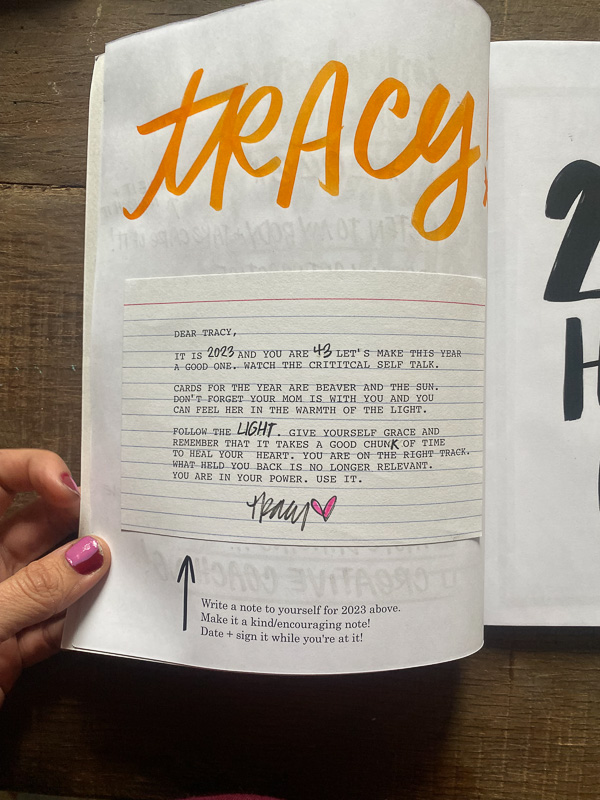 tRACY
DEAR TRACY,
IT IS 2023 AND YOU ARE 43 LET'S MAKE THIS YEAR
A GOOD ONE. WATCH THE CRITITCAL SELF TALK.
CARDS FOR THE YEAR ARE BEAVER AND THE SUN.
DON'T FORGET YOUR MOM IS WITH YOU AND YOU
CAN FEEL HER IN THE WARMTH OF THE LIGHT.
FOLLOW THE LIGHT. GIVE YOURSELF GRACE AND
REMEMBER THAT IT TAKES A GOOD CHUNK OF TIME
TO HEAL YOUR HEART. YOU ARE ON THE RIGHT TRACK.
WHAT HELD YOU BACK IS NO LONGER RELEVANT.
YOU ARE IN YOUR POWER. USE IT.
tracy
Write a note to yourself for 2023 above.
Make it a kind/encouraging note!
Date + sign it while you're at it!
2
H